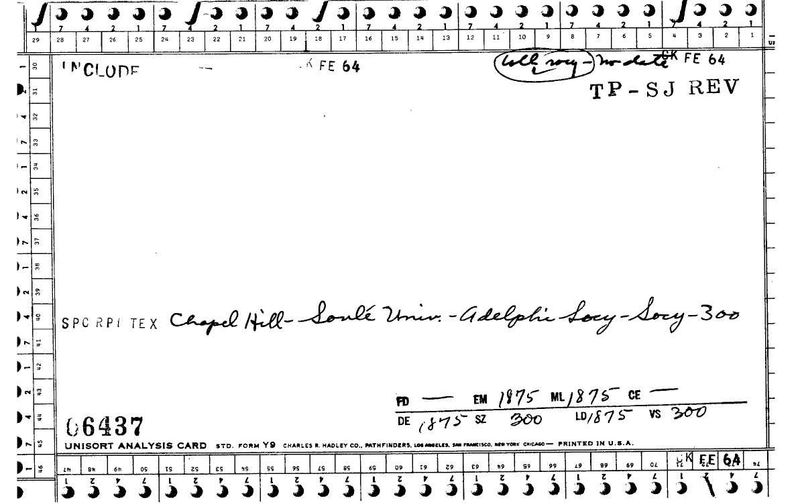 7 4 2 1 7 4 2 1 7 4 2 1 7 4 2 1 7 4 2 1 7 4 2 1 7 4 2 1
29 28 27 26 25 24 23 22 21 20 19 18 17 16 15 14 13 12 11 10 9 8 7 6 5 4 3 2 1
INCLUDE — CK FE 64 Coll socy - no date CK FE 64
TP-SJ REV
30
31
32
33
34
35
36
37
38
39
SPC RPI TEX Chapel Hill - Soulé Univ. - Adelphi Socy - Socy - 300
40
41
42
43
FD — EM 1875 ML 1875 CE —
DE 1875 SZ 300 LD 1875 VS 300
44
06437
45
UNISORT ANALYSIS CARD STD. FORM Y9 CHARLES R. HADLEY CO., PATHFINDERS, LOS ANGELES, SAN FRANCISCO, NEW YORK CHICAGO — PRINTED IN U.S.A.
46 47 48 49 50 51 52 53 54 55 56 57 58 59 60 61 62 63 64 65 66 67 68 69 70 CK FE 64 74